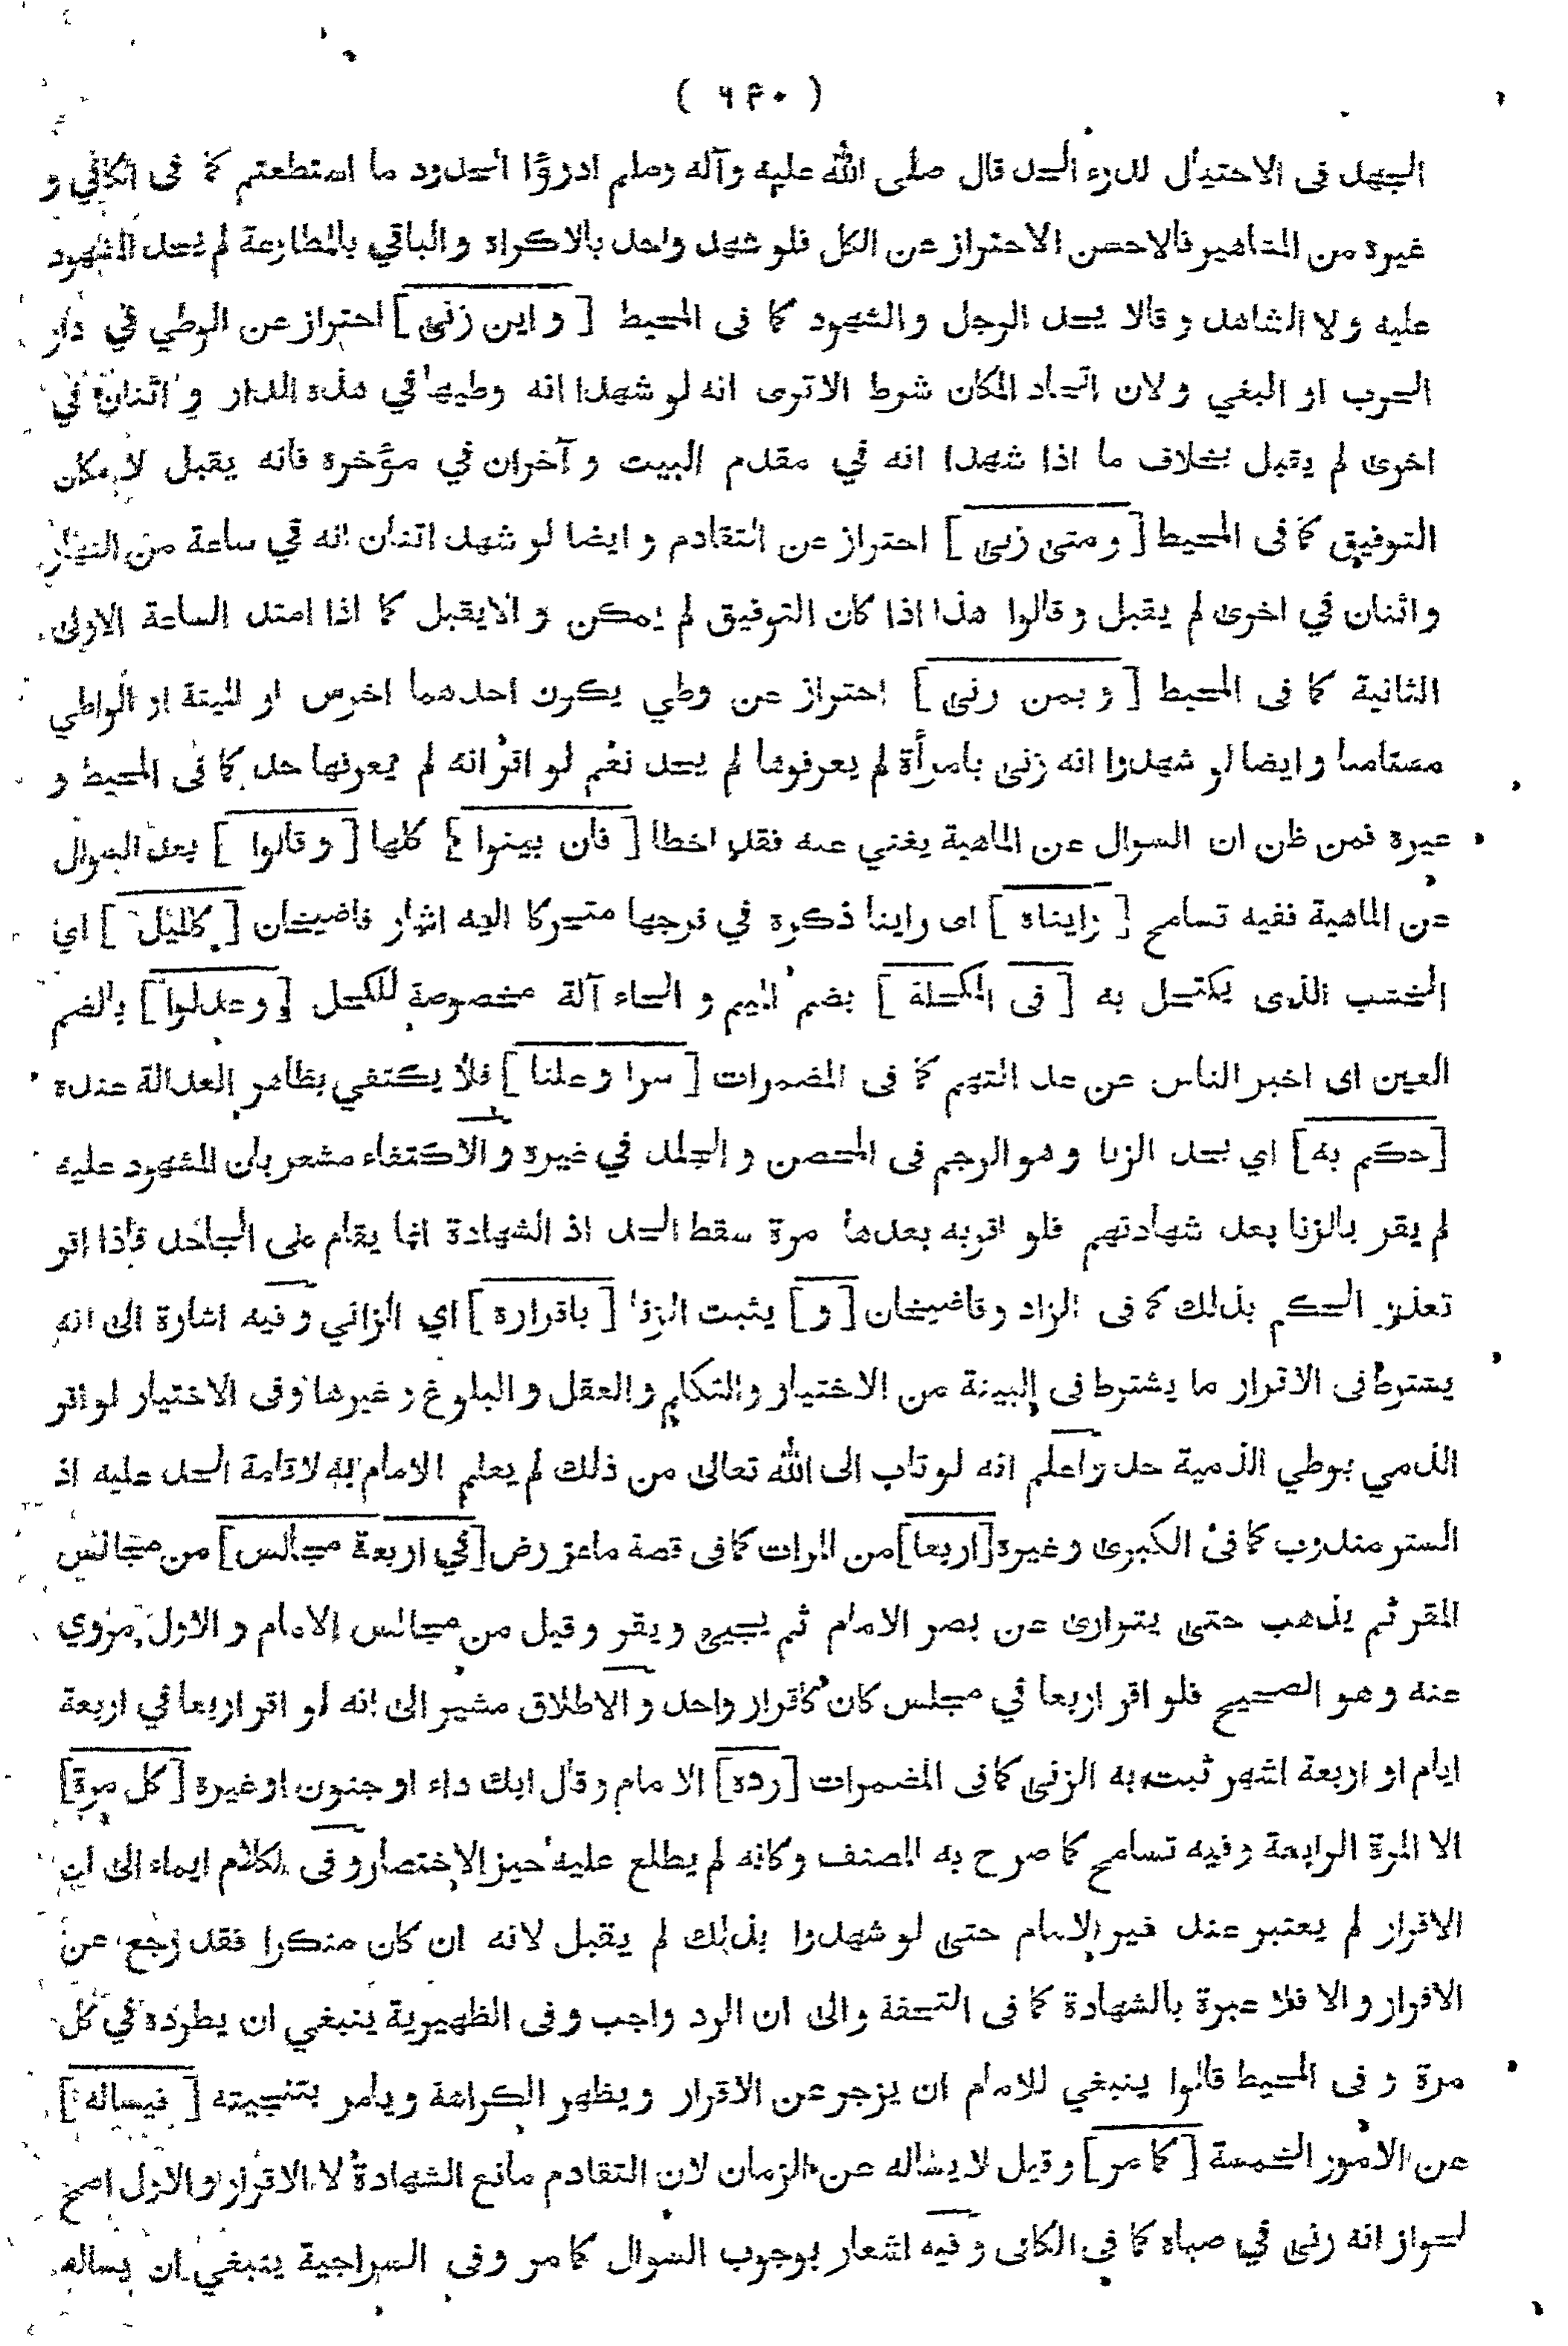 ( ٦٤٠ )
الجهد فى الاحتيال لدرء الحد قال صلى الله عليه وآله وسلم ادرؤا الحدود ما استطعتم كما فى الكافي و
غيره من المشاهير فالاحسن الاحتراز عن الكل فلو شهد واحد بالاكراه و الباقي بالمطاوعة لم يحد المشهود
عليه و لا الشاهد و قالا يحد الرجل و الشهود كما فى المحيط [ و اين زنى ] احتراز عن الوطي في دار
الحرب او البغي و لان اتحاد المكان شرط الا ترى انه لو شهدا انه وطيها في هذه الدار و اثنان في
اخرى لم يقبل بخلاف ما اذا شهدا انه في مقدم البيت و آخران في مؤخره فانه يقبل لامكان
التوفيق كما فى المحيط [ و متى زنى ] احتراز عن التقادم و ايضا لو شهد اثنان انه في ساعة من النهار
و اثنان في اخرى لم يقبل و قالوا هذا اذا كان التوفيق لم يمكن و الا يقبل كما اذا امتد الساعة الاولى
الثانية كما فى المحيط [ و بمن زنى ] احتراز عن وطي يكون احدهما اخرس او الميتة او الواطي
مستامنا و ايضا لو شهدوا انه زنى بامرأة لم يعرفوها لم يحد نعم لو اقر انه لم يعرفها حد كما فى المحيط و
غيره فمن ظن ان السوال عن الماهية يغني عنه فقد اخطا [ فان بينوا ] كلها [ و قالوا ] بعد السوال
عن الماهية ففيه تسامح [ رايناه ] اى راينا ذكره في فرجها متحركا اليه اشار قاضيخان [ كالميل ] اي
الخشب الذى يكتحل به [ فى المكحلة ] بضم الميم و الحاء آلة مخصوصة للكحل [ و عدلوا ] بالضم
العين اى اخبر الناس عن عد التهم كما فى المضمرات [ سرا و علنا ] فلا يكتفي بظاهر العدالة عنده
[ حكم به ] اي بحد الزنا و هو الرجم فى المحصن و الجلد في غيره و الاكتفاء مشعر بان المشهود عليه
لم يقر بالزنا بعد شهادتهم فلو اقر به بعدها مرة سقط الحد اذ الشهادة انما يقام على الجاحد فاذا اقر
تعذر الحكم بذلك كما فى الزاد و قاضيخان [ و ] يثبت الزنا [ باقراره ] اي الزاني و فيه اشارة الى انه
يشترط فى الاقرار ما يشترط فى البينة من الاختيار و التكلم و العقل و البلوغ و غيرها و فى الاختيار لو اقر
الذمي بوطي الذمية حد و اعلم انه لو تاب الى الله تعالى من ذلك لم يعلم الامام به لاقامة الحد عليه اذ
الستر مندوب كما فى الكبرى و غيره [ اربعا ] من المرات كما فى قصة ماعز رض [ في اربعة مجالس ] من مجالس
المقر ثم يذهب حتى يتوارى عن بصر الامام ثم يجيء و يقر و قيل من مجالس الامام و الاول مروي
عنه و هو الصحيح فلو اقر اربعا في مجلس كان كاقرار واحد و الاطلاق مشير الى انه لو اقر اربعا في اربعة
ايام او اربعة اشهر ثبت به الزنى كما فى المضمرات [ رده ] الامام و قال ابك داء او جنون او غيره [ كل مرة ]
الا المرة الرابعة و فيه تسامح كما صرح به المصنف و كانه لم يطلع عليه حيز الاختصار و فى الكلام ايماء الى ان
الاقرار لم يعتبر عند غير الامام حتى لو شهدوا بذلك لم يقبل لانه ان كان منكرا فقد رجع عن
الاقرار و الا فلا عبرة بالشهادة كما فى التحفة و الى ان الرد واجب و فى الظهيرية ينبغي ان يطرده في كل
مرة و فى المحيط قالوا ينبغي للامام ان يزجر عن الاقرار و يظهر الكراهة و يامر بتنحيته [ فيساله ]
عن الامور الخمسة [ كما مر ] و قيل لا يساله عن الزمان لان التقادم مانع الشهادة لا الاقرار و الاول اصح
لجواز انه زنى في صباه كما فى الكافى و فيه اشعار بوجوب السوال كما مر و فى السراجية ينبغي ان يساله